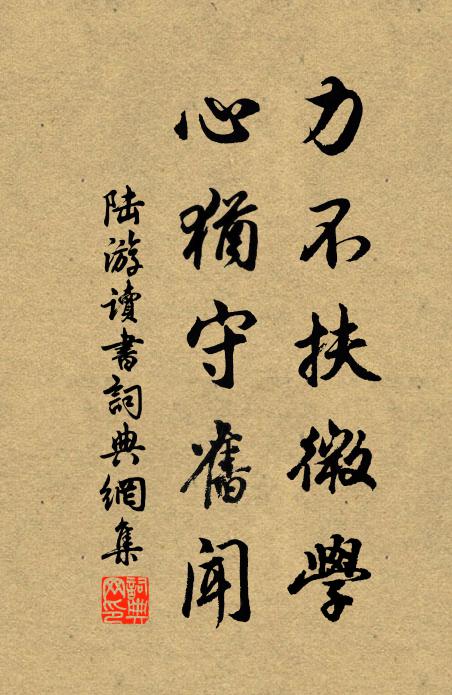 力不扶微學
心猶守舊聞
陆游讀書詞典網集
詞典网印